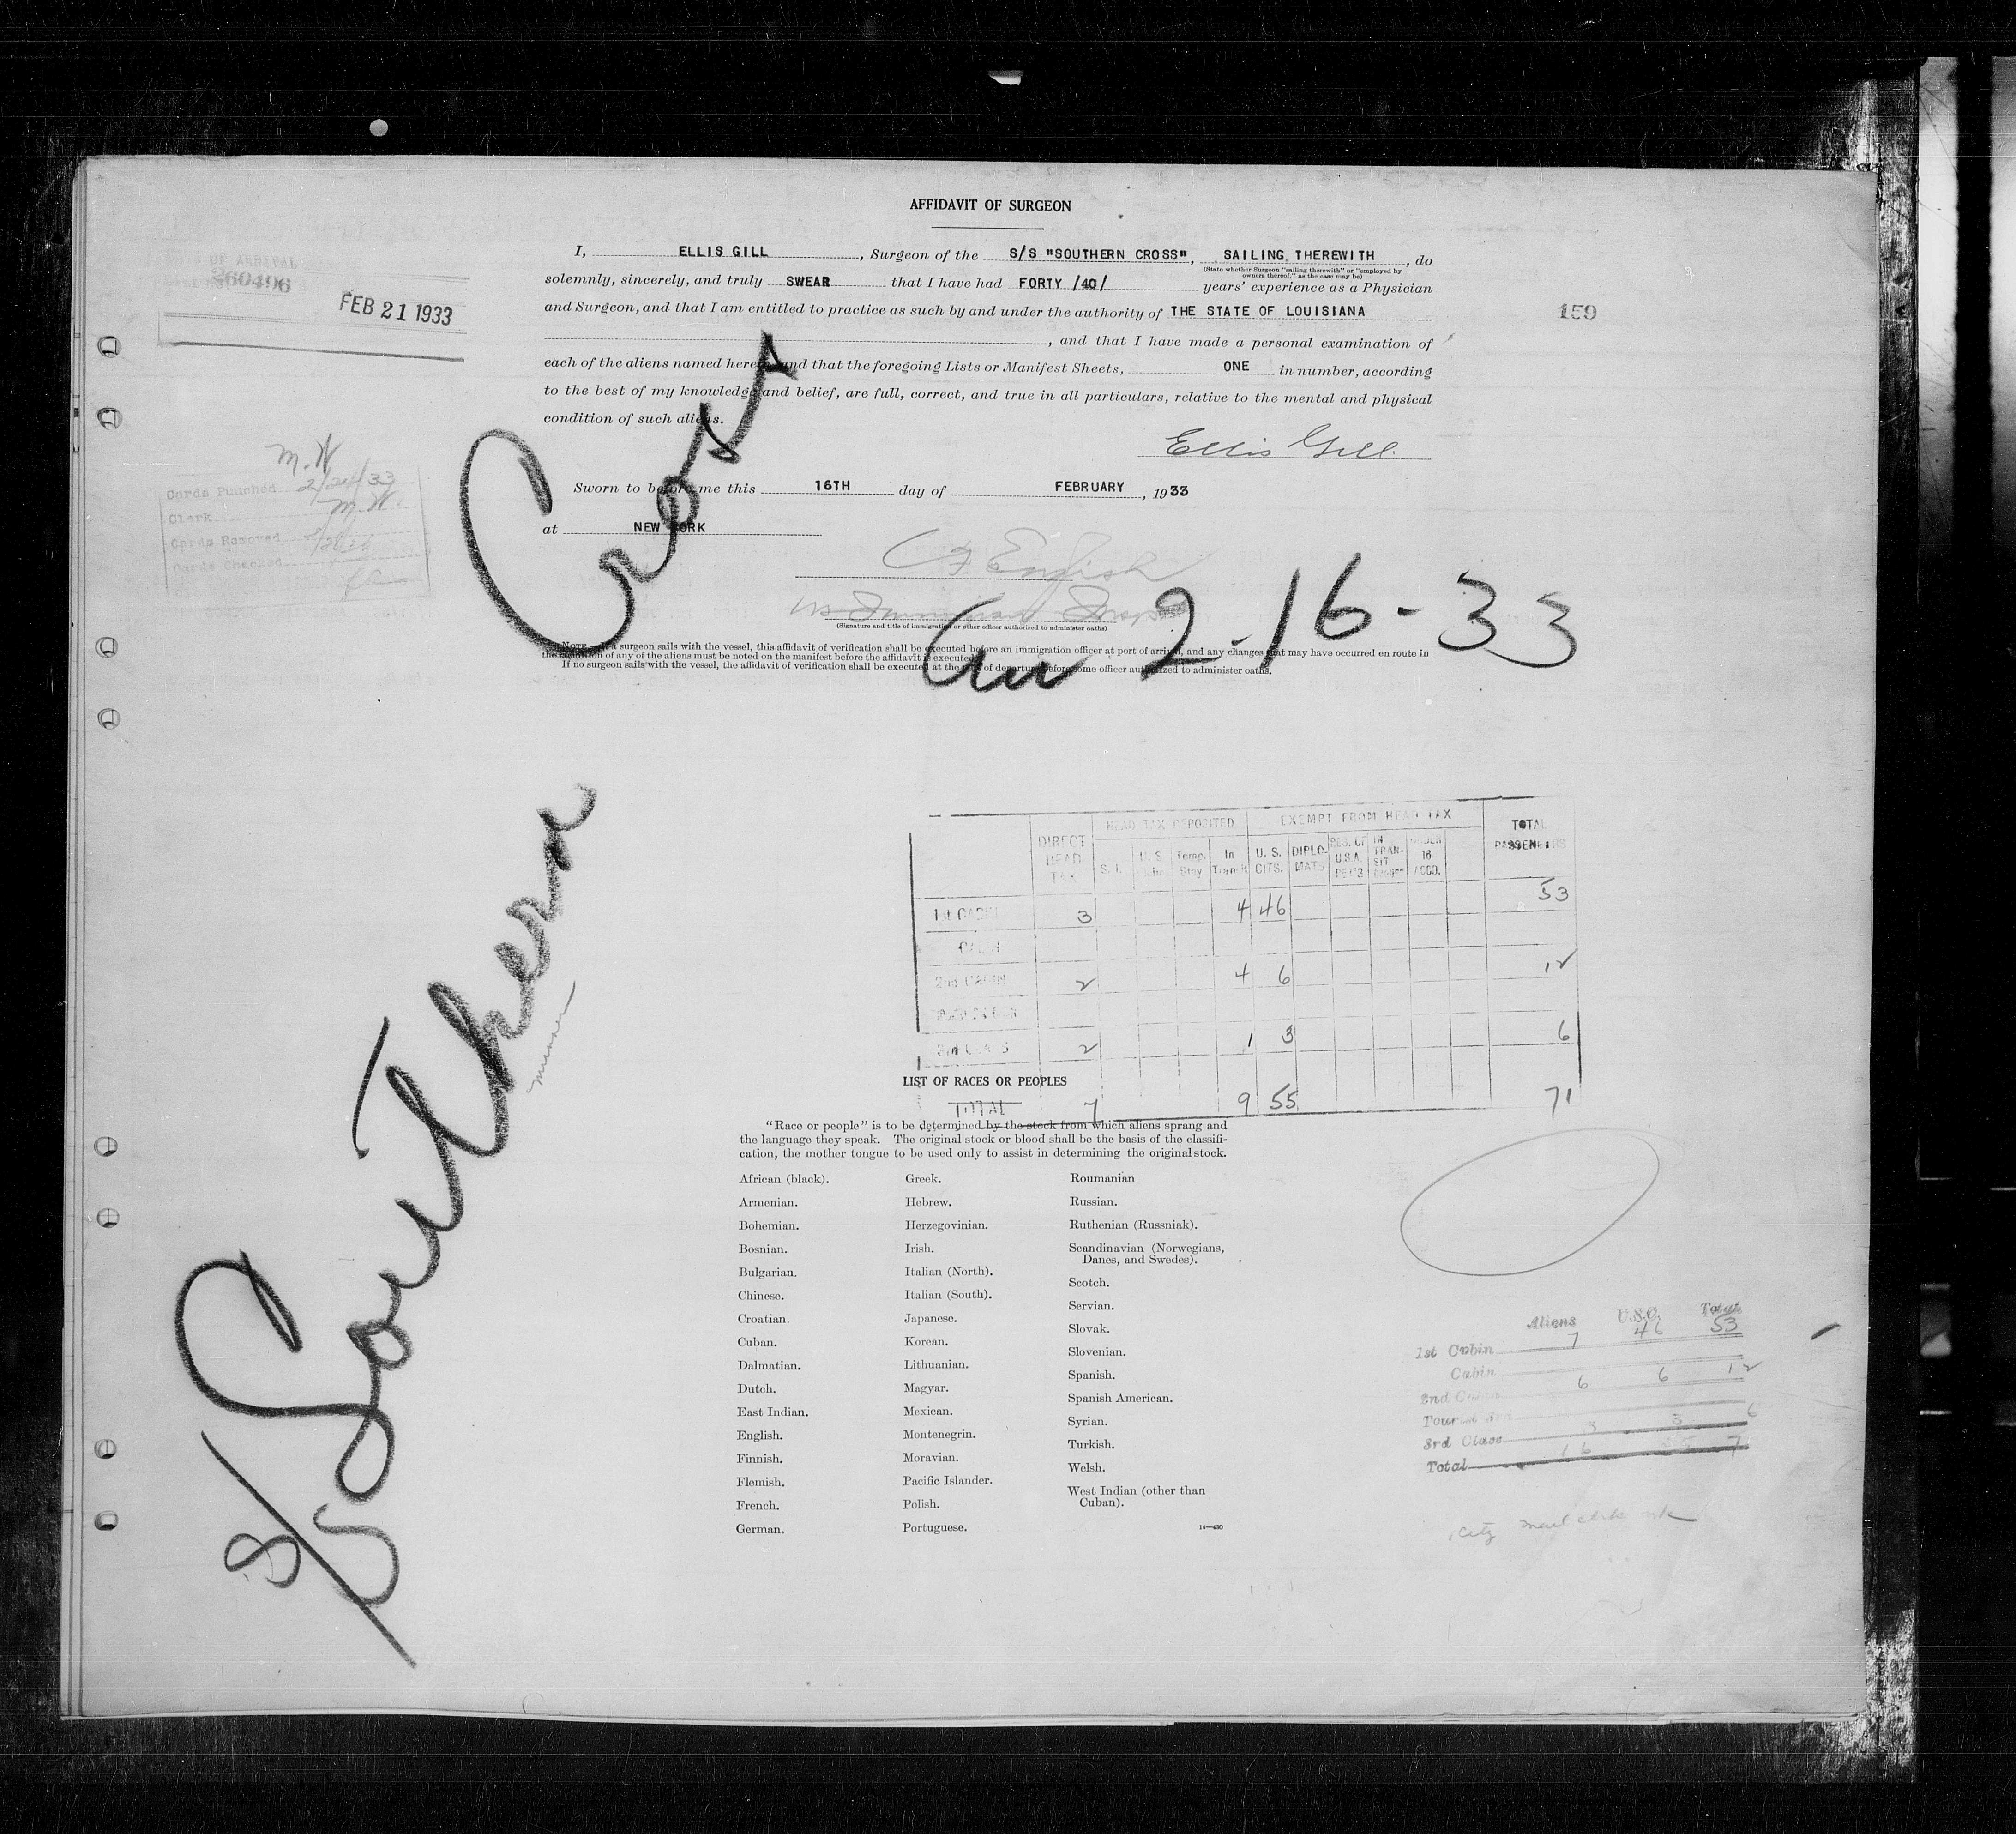 AFFIDAVIT OF SURGEON
I, ELLIS GILL, Surgeon of the S/S "SOUTHERN CROSS", SAILING THEREWITH, do
(State whether Surgeon "sailing therewith" or "employed by
owners thereof," as the case may be)
solemnly, sincerely, and truly SWEAR that I have had FORTY /40/ years' experience as a Physician
and Surgeon, and that I am entitled to practice as such by and under the authority of THE STATE OF LOUISIANA
, and that I have made a personal examination of
each of the aliens named herein and that the foregoing Lists or Manifest Sheets, ONE in number, according
to the best of my knowledge and belief, are full, correct, and true in all particulars, relative to the mental and physical
condition of such aliens.
Ellis Gill
Sworn to before me this 16TH day of FEBRUARY, 1933
at NEW YORK
(Signature and title of immigration or other officer authorized to administer oaths)
NOTE.—If a surgeon sails with the vessel, this affidavit of verification shall be executed before an immigration officer at port of arrival, and any changes that may have occurred en route in
the condition of any of the aliens must be noted on the manifest before the affidavit is executed.
If no surgeon sails with the vessel, the affidavit of verification shall be executed at the port of departure before some officer authorized to administer oaths.
OF ARRIVAL
260496
FEB 21 1933
159
M.W
Cards Punched 2/24/33
Clerk M.W.
Cards Removed
Cards Checked
S/S Southern Cross
Arr 2-16-33
DIRECT HEAD TAX
HEAD TAX DEPOSITED
EXEMPT FROM HEAD TAX
TOTAL PASSENGERS
S. I. U. S. Temp. Stay In Transit U. S. CITS. DIPLOMATS RES. OF U.S.A. IN TRANSIT UNDER 16 ACCO.
1st CABIN 3 4 46 53
CABIN
2nd CABIN 2 4 6 12
3rd CLASS 2 1 3 6
TOTAL 7 9 55 71
LIST OF RACES OR PEOPLES
"Race or people" is to be determined by the stock from which aliens sprang and
the language they speak. The original stock or blood shall be the basis of the classifi-
cation, the mother tongue to be used only to assist in determining the original stock.
African (black).
Armenian.
Bohemian.
Bosnian.
Bulgarian.
Chinese.
Croatian.
Cuban.
Dalmatian.
Dutch.
East Indian.
English.
Finnish.
Flemish.
French.
German.
Greek.
Hebrew.
Herzegovinian.
Irish.
Italian (North).
Italian (South).
Japanese.
Korean.
Lithuanian.
Magyar.
Mexican.
Montenegrin.
Moravian.
Pacific Islander.
Polish.
Portuguese.
Roumanian
Russian.
Ruthenian (Russniak).
Scandinavian (Norwegians,
Danes, and Swedes).
Scotch.
Servian.
Slovak.
Slovenian.
Spanish.
Spanish American.
Syrian.
Turkish.
Welsh.
West Indian (other than
Cuban).
14—430
Aliens U.S.C. Total
1st Cabin 7 46 53
Cabin
2nd Cabin 6 6 12
Tourist 3rd
3rd Class 3 3 6
Total 16 55 71